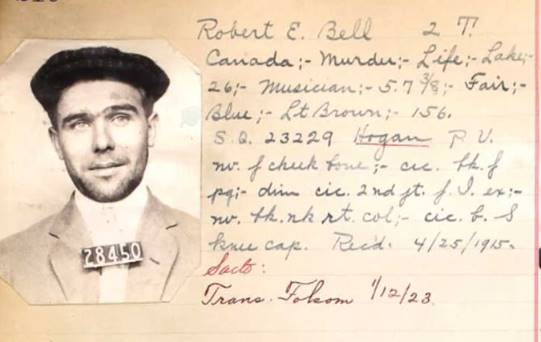 Robert E. Bell 2 T.
Canada;- Murder;- Life;- Lake;-
26;- Musician;- 5.7 3/8;- Fair;-
Blue;- Lt Brown;- 156.
S.Q. 23229 Hogan P.V.
nv. f cheek bone;- cic. bk. f
pg;- dim cic. 2nd jt. f. I. ex;-
nv. bk. nk rt. col;- cic. b. S
knee cap. Recd. 4/25/1915.
Sacto:
Trans. Folsom 1/12/23.
28450